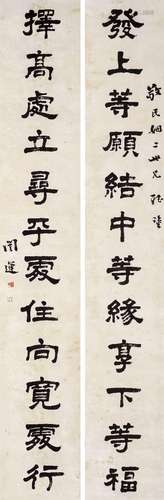 敬民姻二世兄
發上等願結中等緣享下等福
擇高處立尋平處住向寬處行
闓運